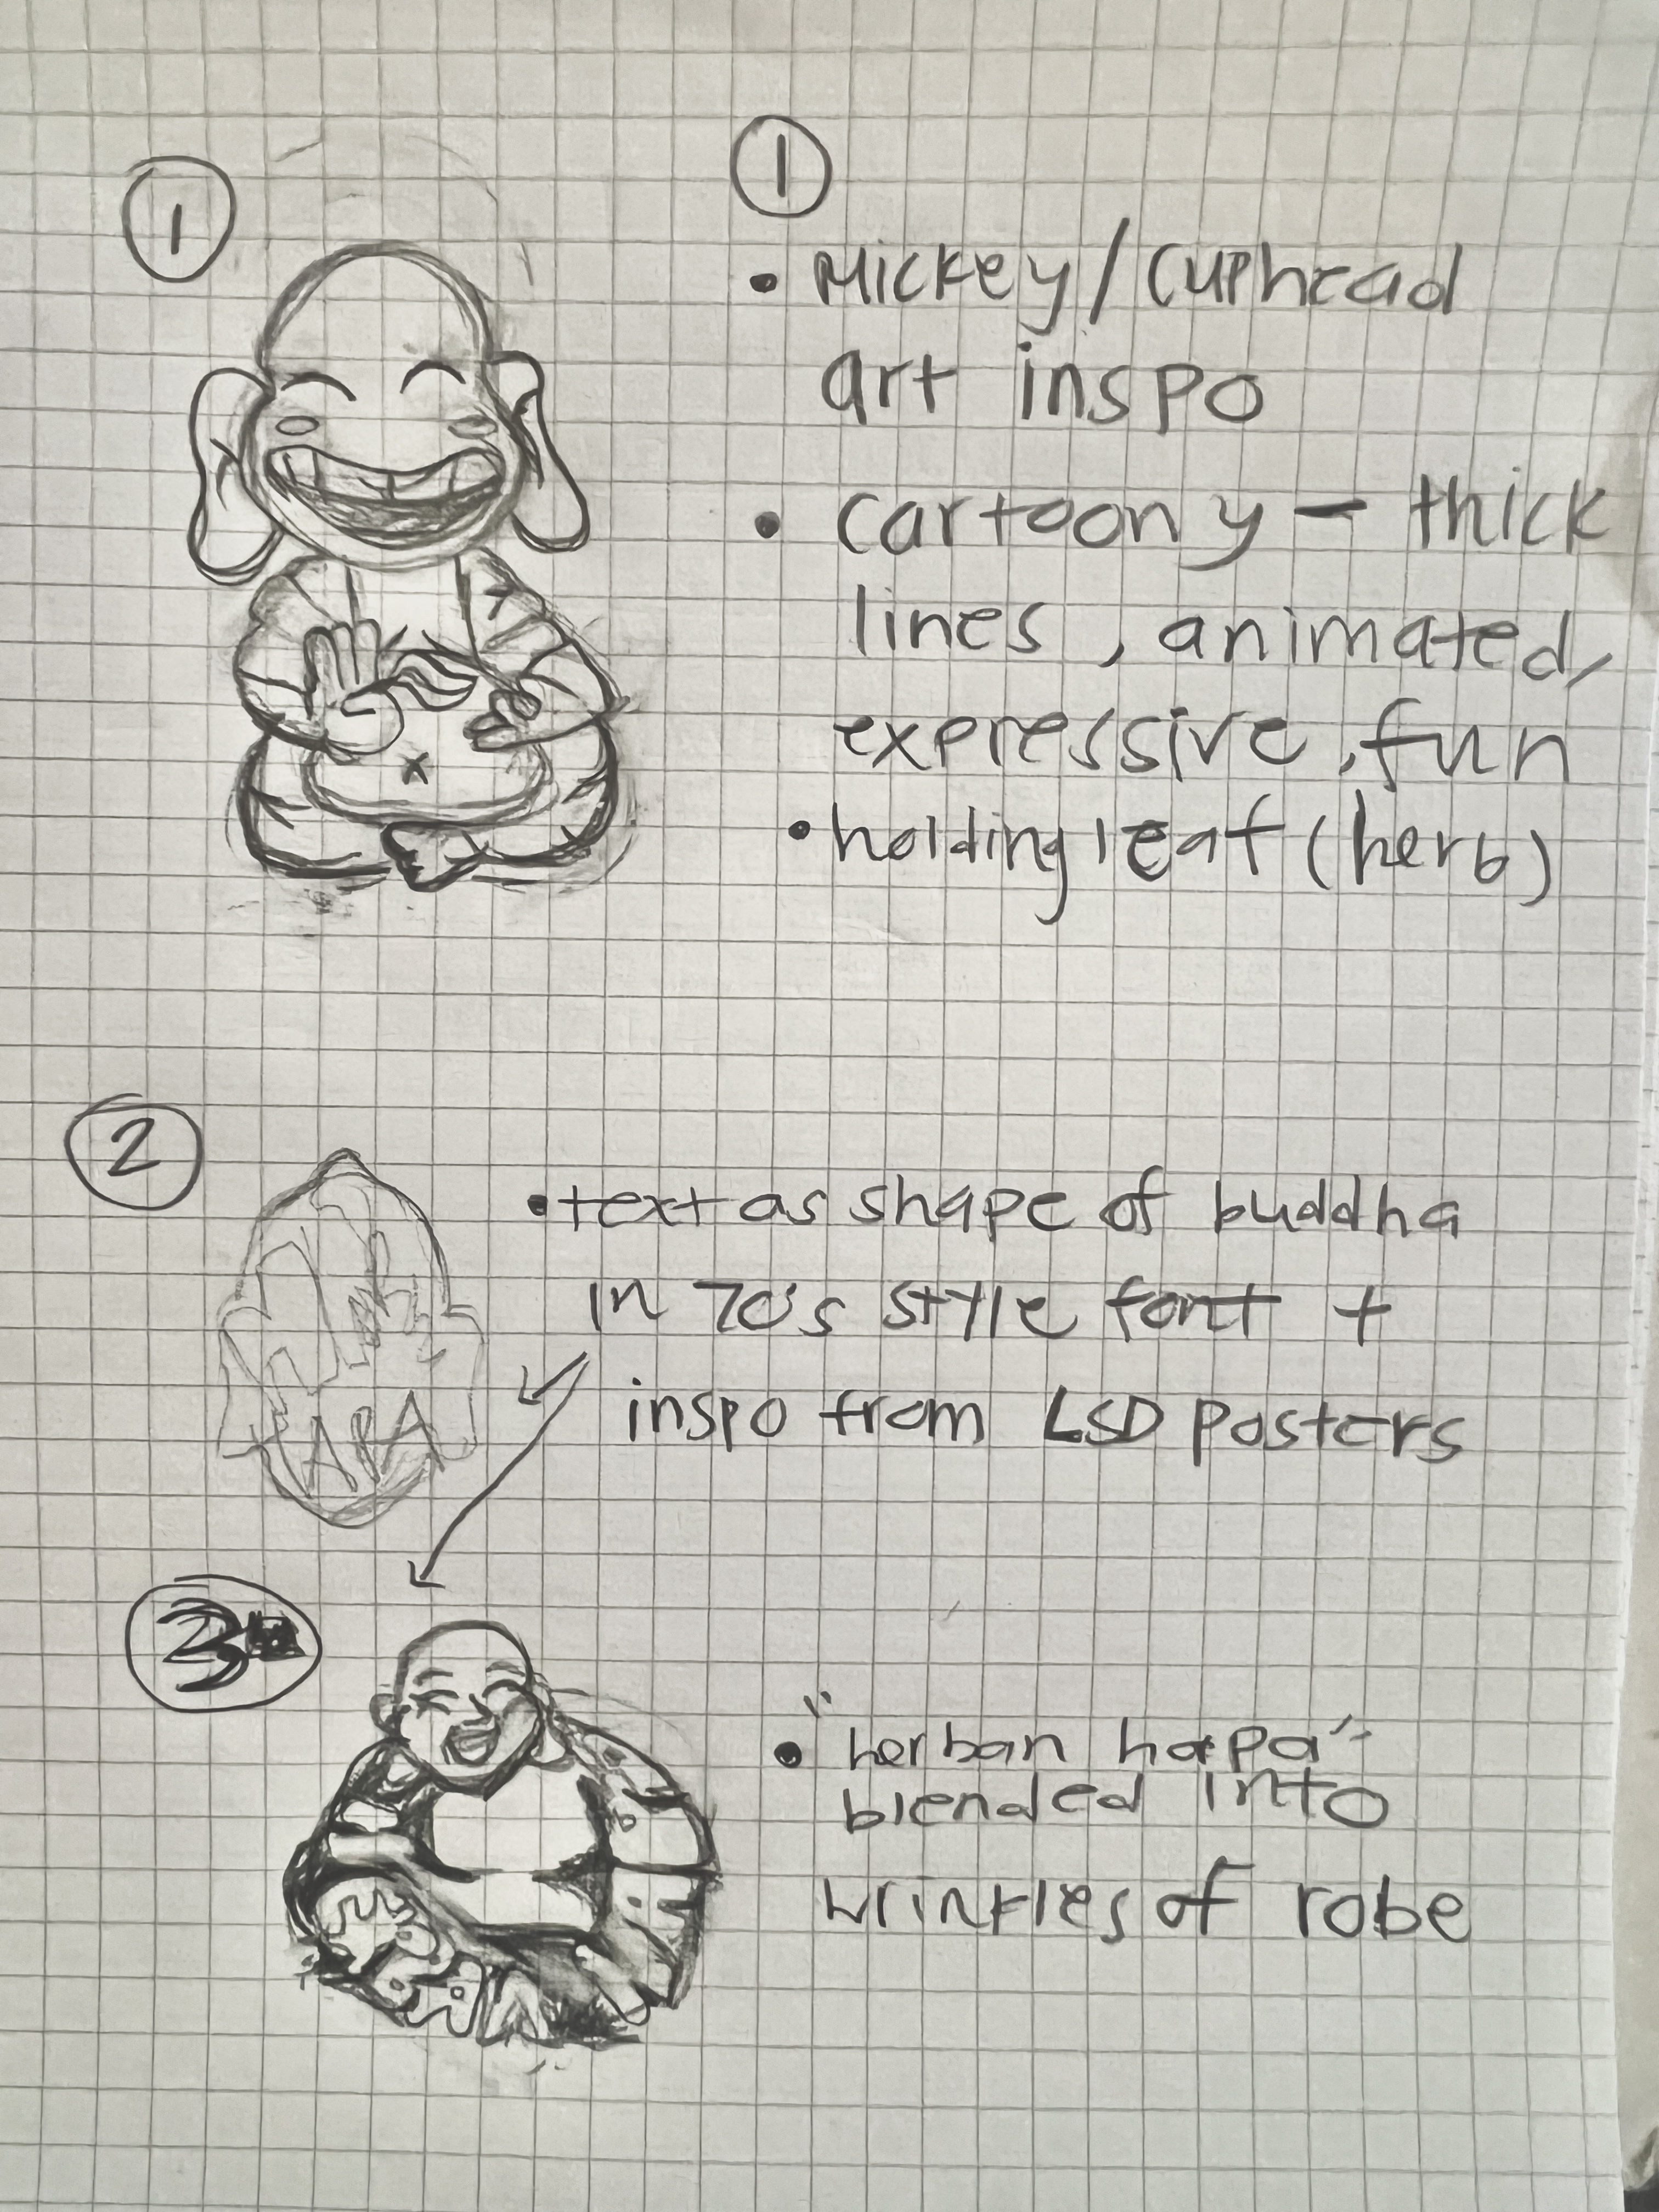 1
1
• Mickey / Cuphead
art inspo
• cartoony – thick
lines, animated,
expressive, fun
• holding leaf (herb)
2
• text as shape of buddha
in 70's style font +
inspo from LSD posters
HAPA
3
• "herban hapa"
blended into
wrinkles of robe